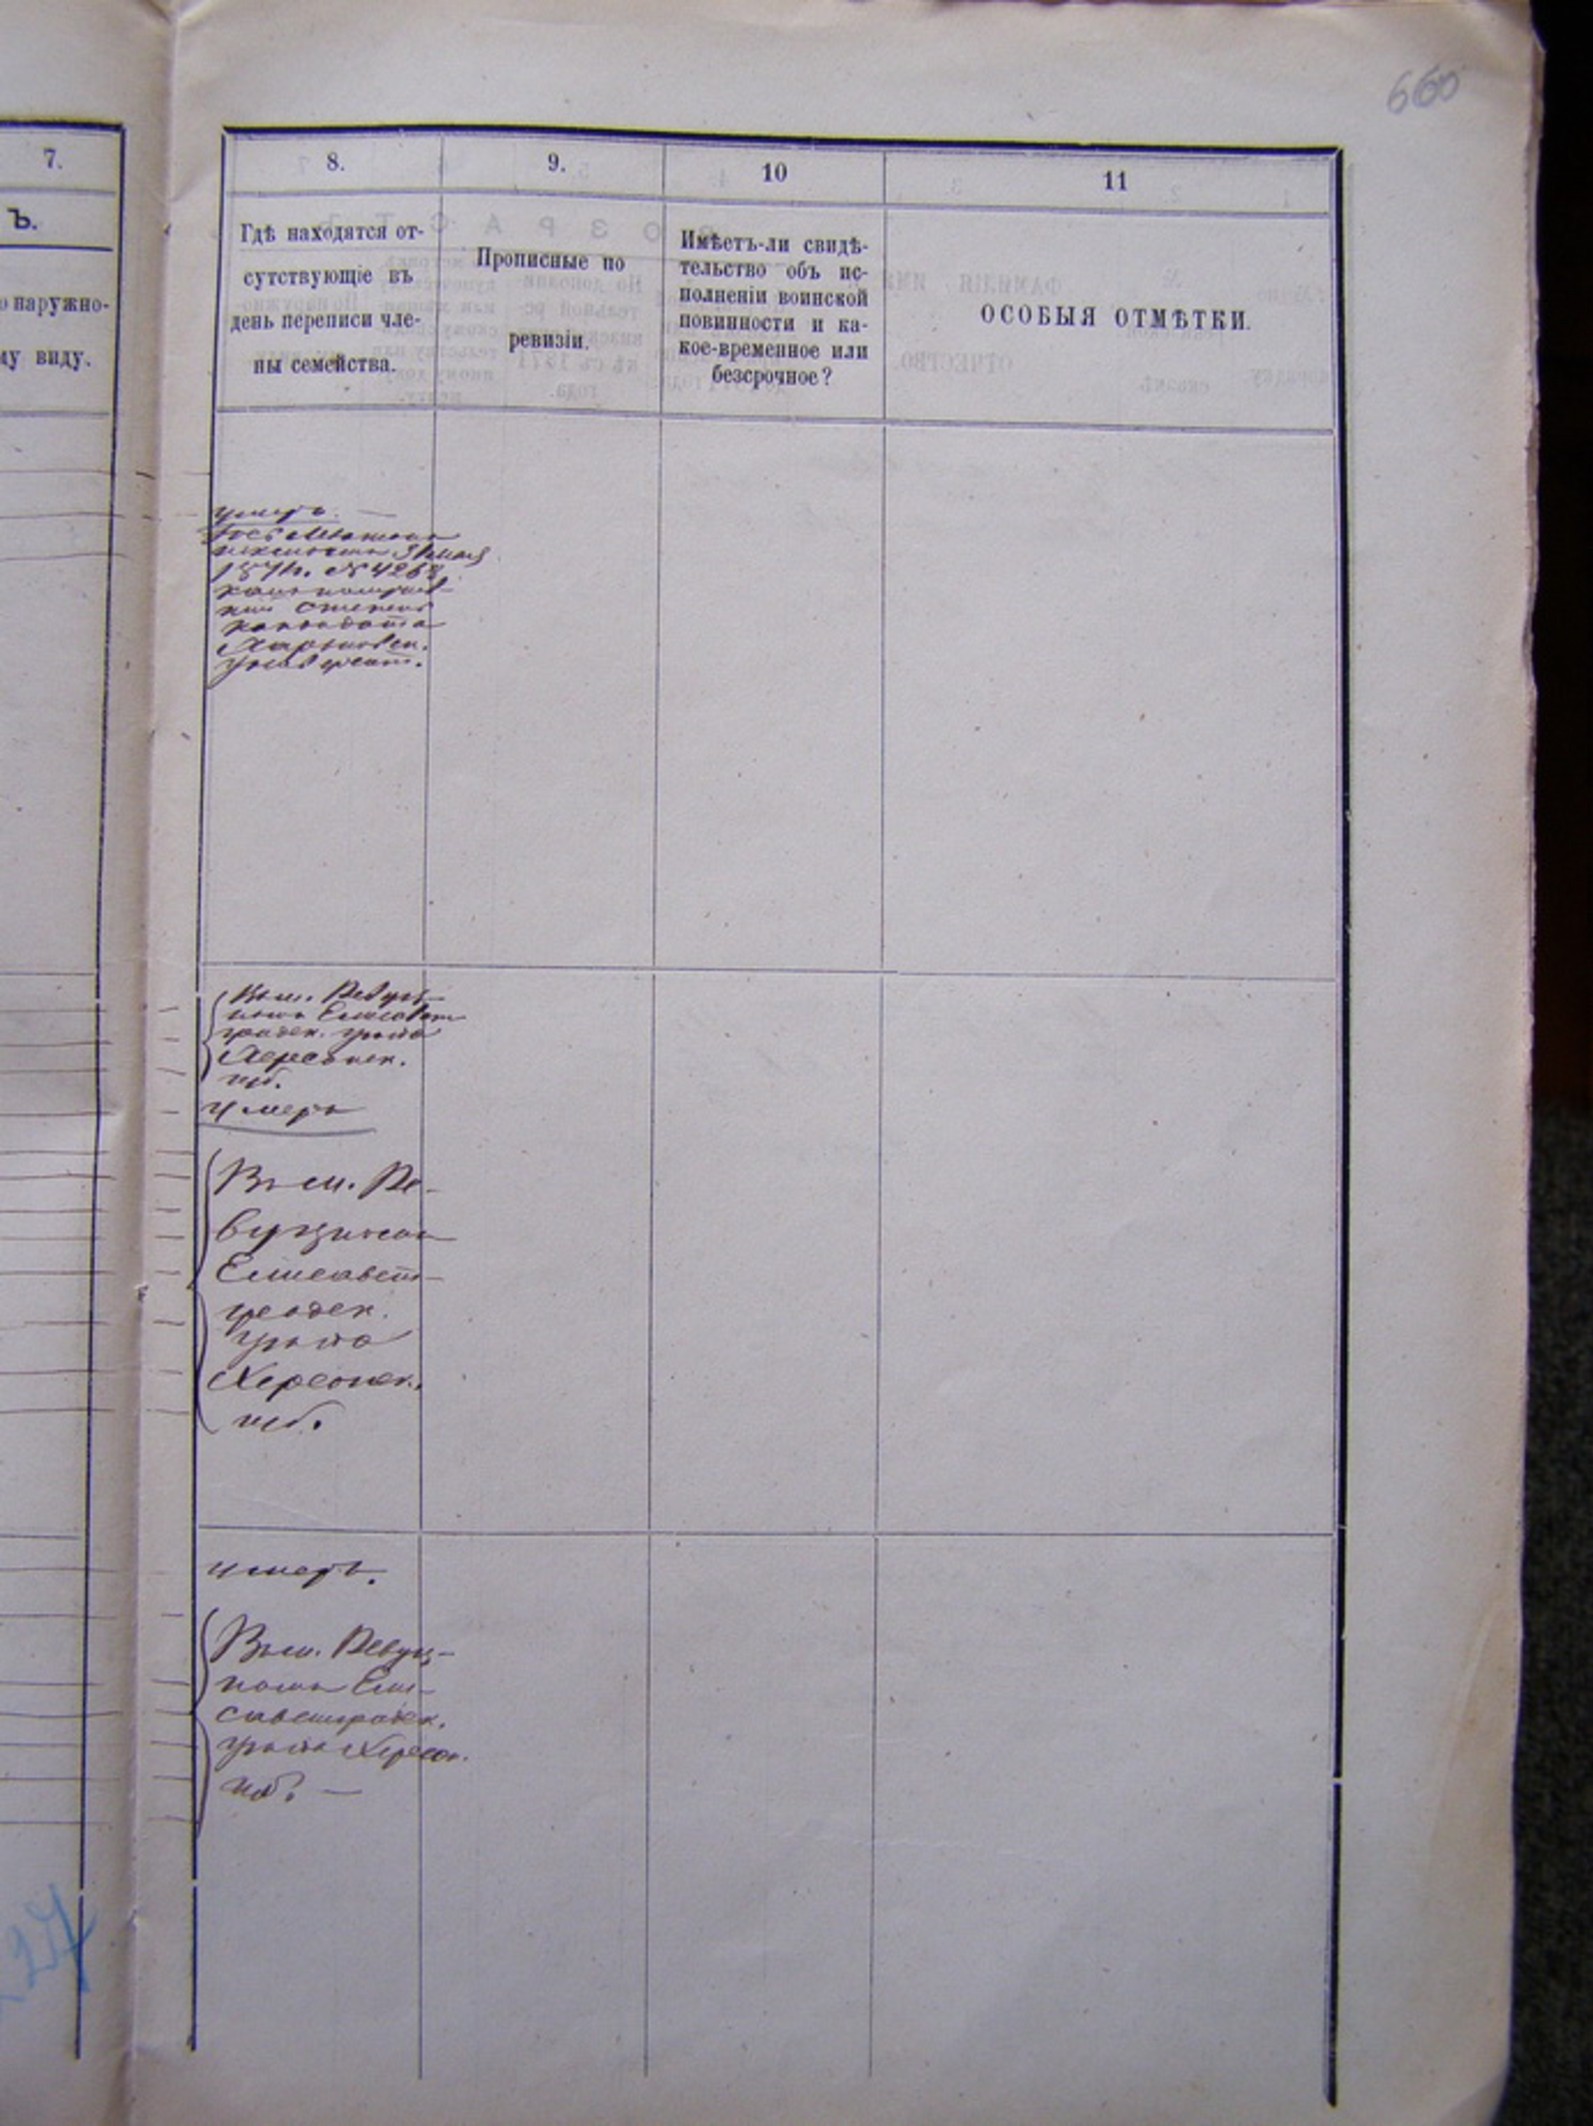 660
7.
Ъ.
о наружно-
му виду.
8.
9.
10
11
Гдѣ находятся от-
сутствующіе въ
день переписи чле-
ны семейства.
Прописные по
ревизіи.
Имѣетъ-ли свидѣ-
тельство объ ис-
полненіи воинской
повинности и ка-
кое-временное или
безсрочное?
ОСОБЫЯ ОТМѢТКИ.
умеръ.
31 мая
№ 4268
степень
кандидата
Харьковск.
университ.
Въ м. Ревуц-
комъ Елисавет
градск. уѣзда
Херсонск.
губ.
умеръ
Въ м. Ре-
вуцкомъ
Елисавет-
градск.
уѣзда
Херсонск.
губ.
умеръ.
Въ м. Ревуц-
комъ Ели-
саветградск.
уѣзда Херсон.
губ. —
27